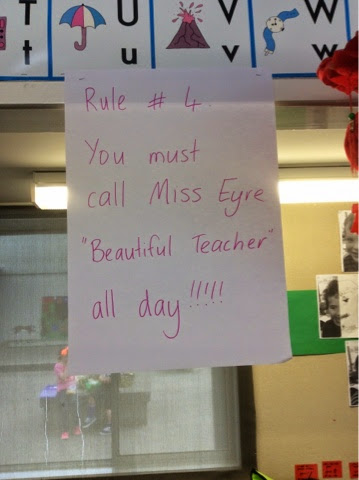 T U V W
t u v w
Rule # 4.
You must
call Miss Eyre
"Beautiful Teacher"
all day!!!!!